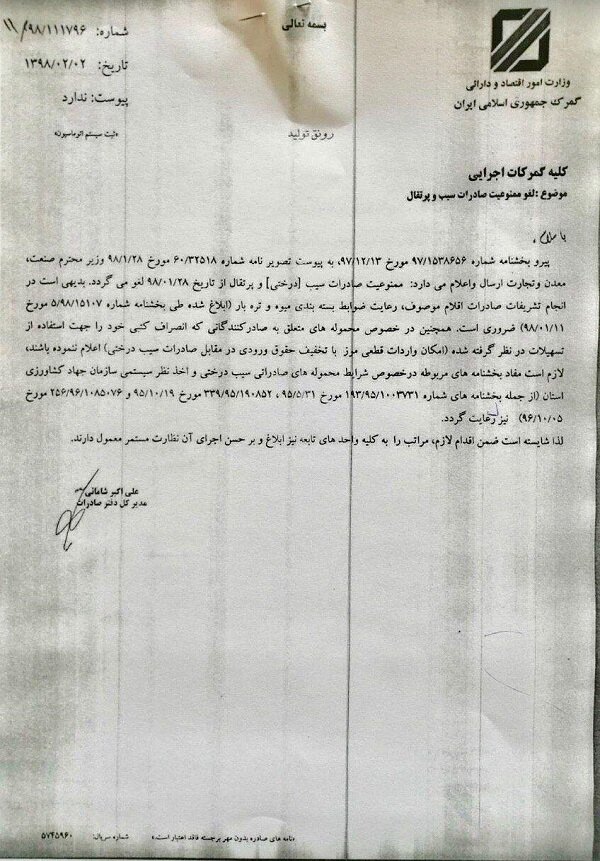 بسمه تعالی
شماره: ۱۱/۹۸/۱۱۱۷۹۶
تاریخ: ۱۳۹۸/۰۲/۰۲
پیوست: ندارد
«ثبت سیستم اتوماسیون»
وزارت امور اقتصاد و دارائی
گمرک جمهوری اسلامی ایران
رونق تولید
کلیه گمرکات اجرایی
موضوع: لغو ممنوعیت صادرات سیب و پرتقال
با سلام،
پیرو بخشنامه شماره ۹۷/۱۵۳۸۶۵۶ مورخ ۹۷/۱۲/۱۳، به پیوست تصویر نامه شماره ۶۰/۳۲۵۱۸ مورخ ۹۸/۱/۲۸ وزیر محترم صنعت،
معدن وتجارت ارسال واعلام می دارد: ممنوعیت صادرات سیب [درختی] و پرتقال از تاریخ ۹۸/۰۱/۲۸ لغو می گردد. بدیهی است در
انجام تشریفات صادرات اقلام موصوف، رعایت ضوابط بسته بندی میوه و تره بار (ابلاغ شده طی بخشنامه شماره ۵/۹۸/۱۵۱۰۷ مورخ
۹۸/۰۱/۱۱) ضروری است. همچنین در خصوص محموله های متعلق به صادرکنندگانی که انصراف کتبی خود را جهت استفاده از
تسهیلات در نظر گرفته شده (امکان واردات قطعی موز با تخفیف حقوق ورودی در مقابل صادرات سیب درختی) اعلام ننموده باشند،
لازم است مفاد بخشنامه های مربوطه درخصوص شرایط محموله های صادراتی سیب درختی و اخذ نظر سیستمی سازمان جهاد کشاورزی
استان (از جمله بخشنامه های شماره ۱۹۳/۹۵/۱۰۰۳۷۳۱ مورخ ۹۵/۵/۳۱، ۳۳۹/۹۵/۱۹۰۸۵۲ مورخ ۹۵/۱۰/۱۹ و ۲۵۶/۹۶/۱۰۸۵۰۷۶ مورخ
۹۶/۱۰/۰۵) نیز رعایت گردد.
لذا شایسته است ضمن اقدام لازم، مراتب را به کلیه واحد های تابعه نیز ابلاغ و بر حسن اجرای آن نظارت مستمر معمول دارند.
علی اکبر شامانی
مدیر کل دفتر صادرات
«نامه های صادره بدون مهر برجسته فاقد اعتبار است.»
شماره سریال: ۵۷۴۵۹۶۰